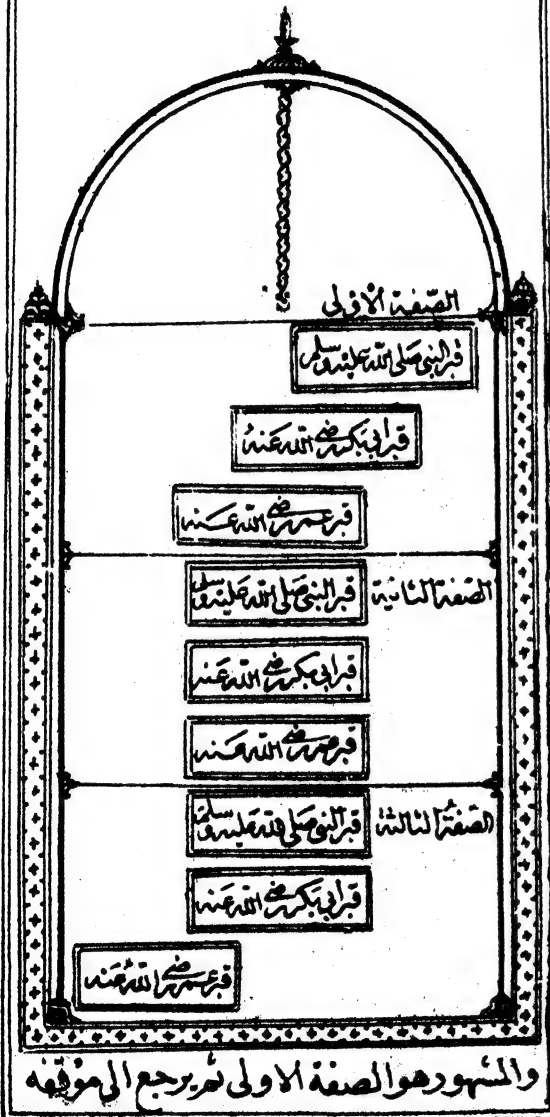 الصفة الاولى
قبر النبي صلى الله عليه وسلم
قبر ابي بكر رضي الله عنه
قبر عمر رضي الله عنه
الصفة الثانية قبر النبي صلى الله عليه وسلم
قبر ابي بكر رضي الله عنه
قبر عمر رضي الله عنه
الصفة الثالثة قبر النبي صلى الله عليه وسلم
قبر ابي بكر رضي الله عنه
قبر عمر رضي الله عنه
والمشهور هو الصفة الاولى ثم يرجع الى موقفه